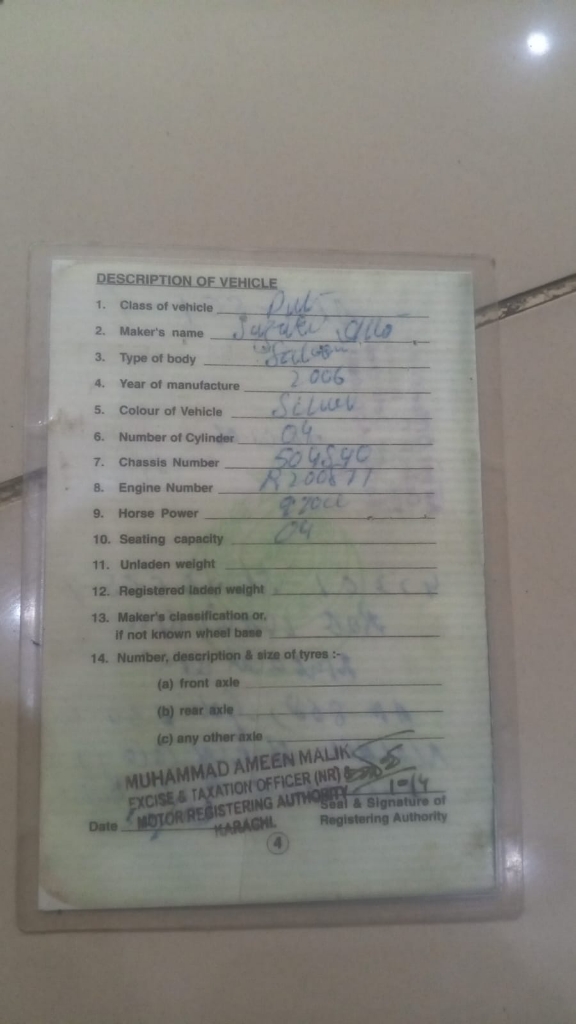 DESCRIPTION OF VEHICLE
1. Class of vehicle Pvt
2. Maker's name Suzuki Alto
3. Type of body Saloon
4. Year of manufacture 2006
5. Colour of Vehicle Silver
6. Number of Cylinder 04
7. Chassis Number 504540
8. Engine Number
9. Horse Power
10. Seating capacity 04
11. Unladen weight
12. Registered laden weight
13. Maker's classification or,
if not known wheel base
14. Number, description & size of tyres :-
(a) front axle
(b) rear axle
(c) any other axle
MUHAMMAD AMEEN MALIK
EXCISE & TAXATION OFFICER (NR) &
MOTOR REGISTERING AUTHORITY
KARACHI.
Date
Seal & Signature of
Registering Authority
4